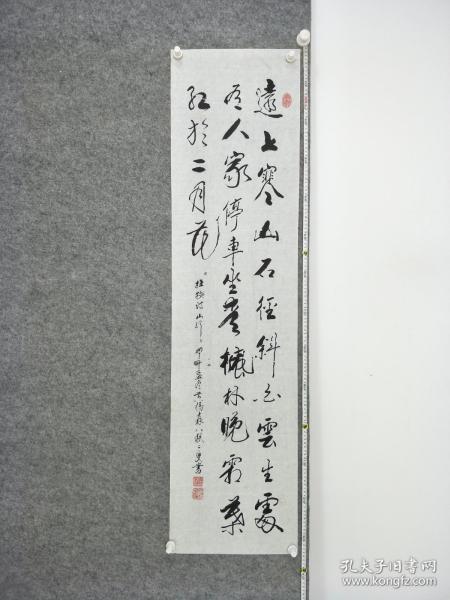 遠上寒山石徑斜白雲生處
有人家停車坐愛楓林晚霜葉
紅於二月花
杜牧詩山行
孔夫子旧书网
www.kongfz.com